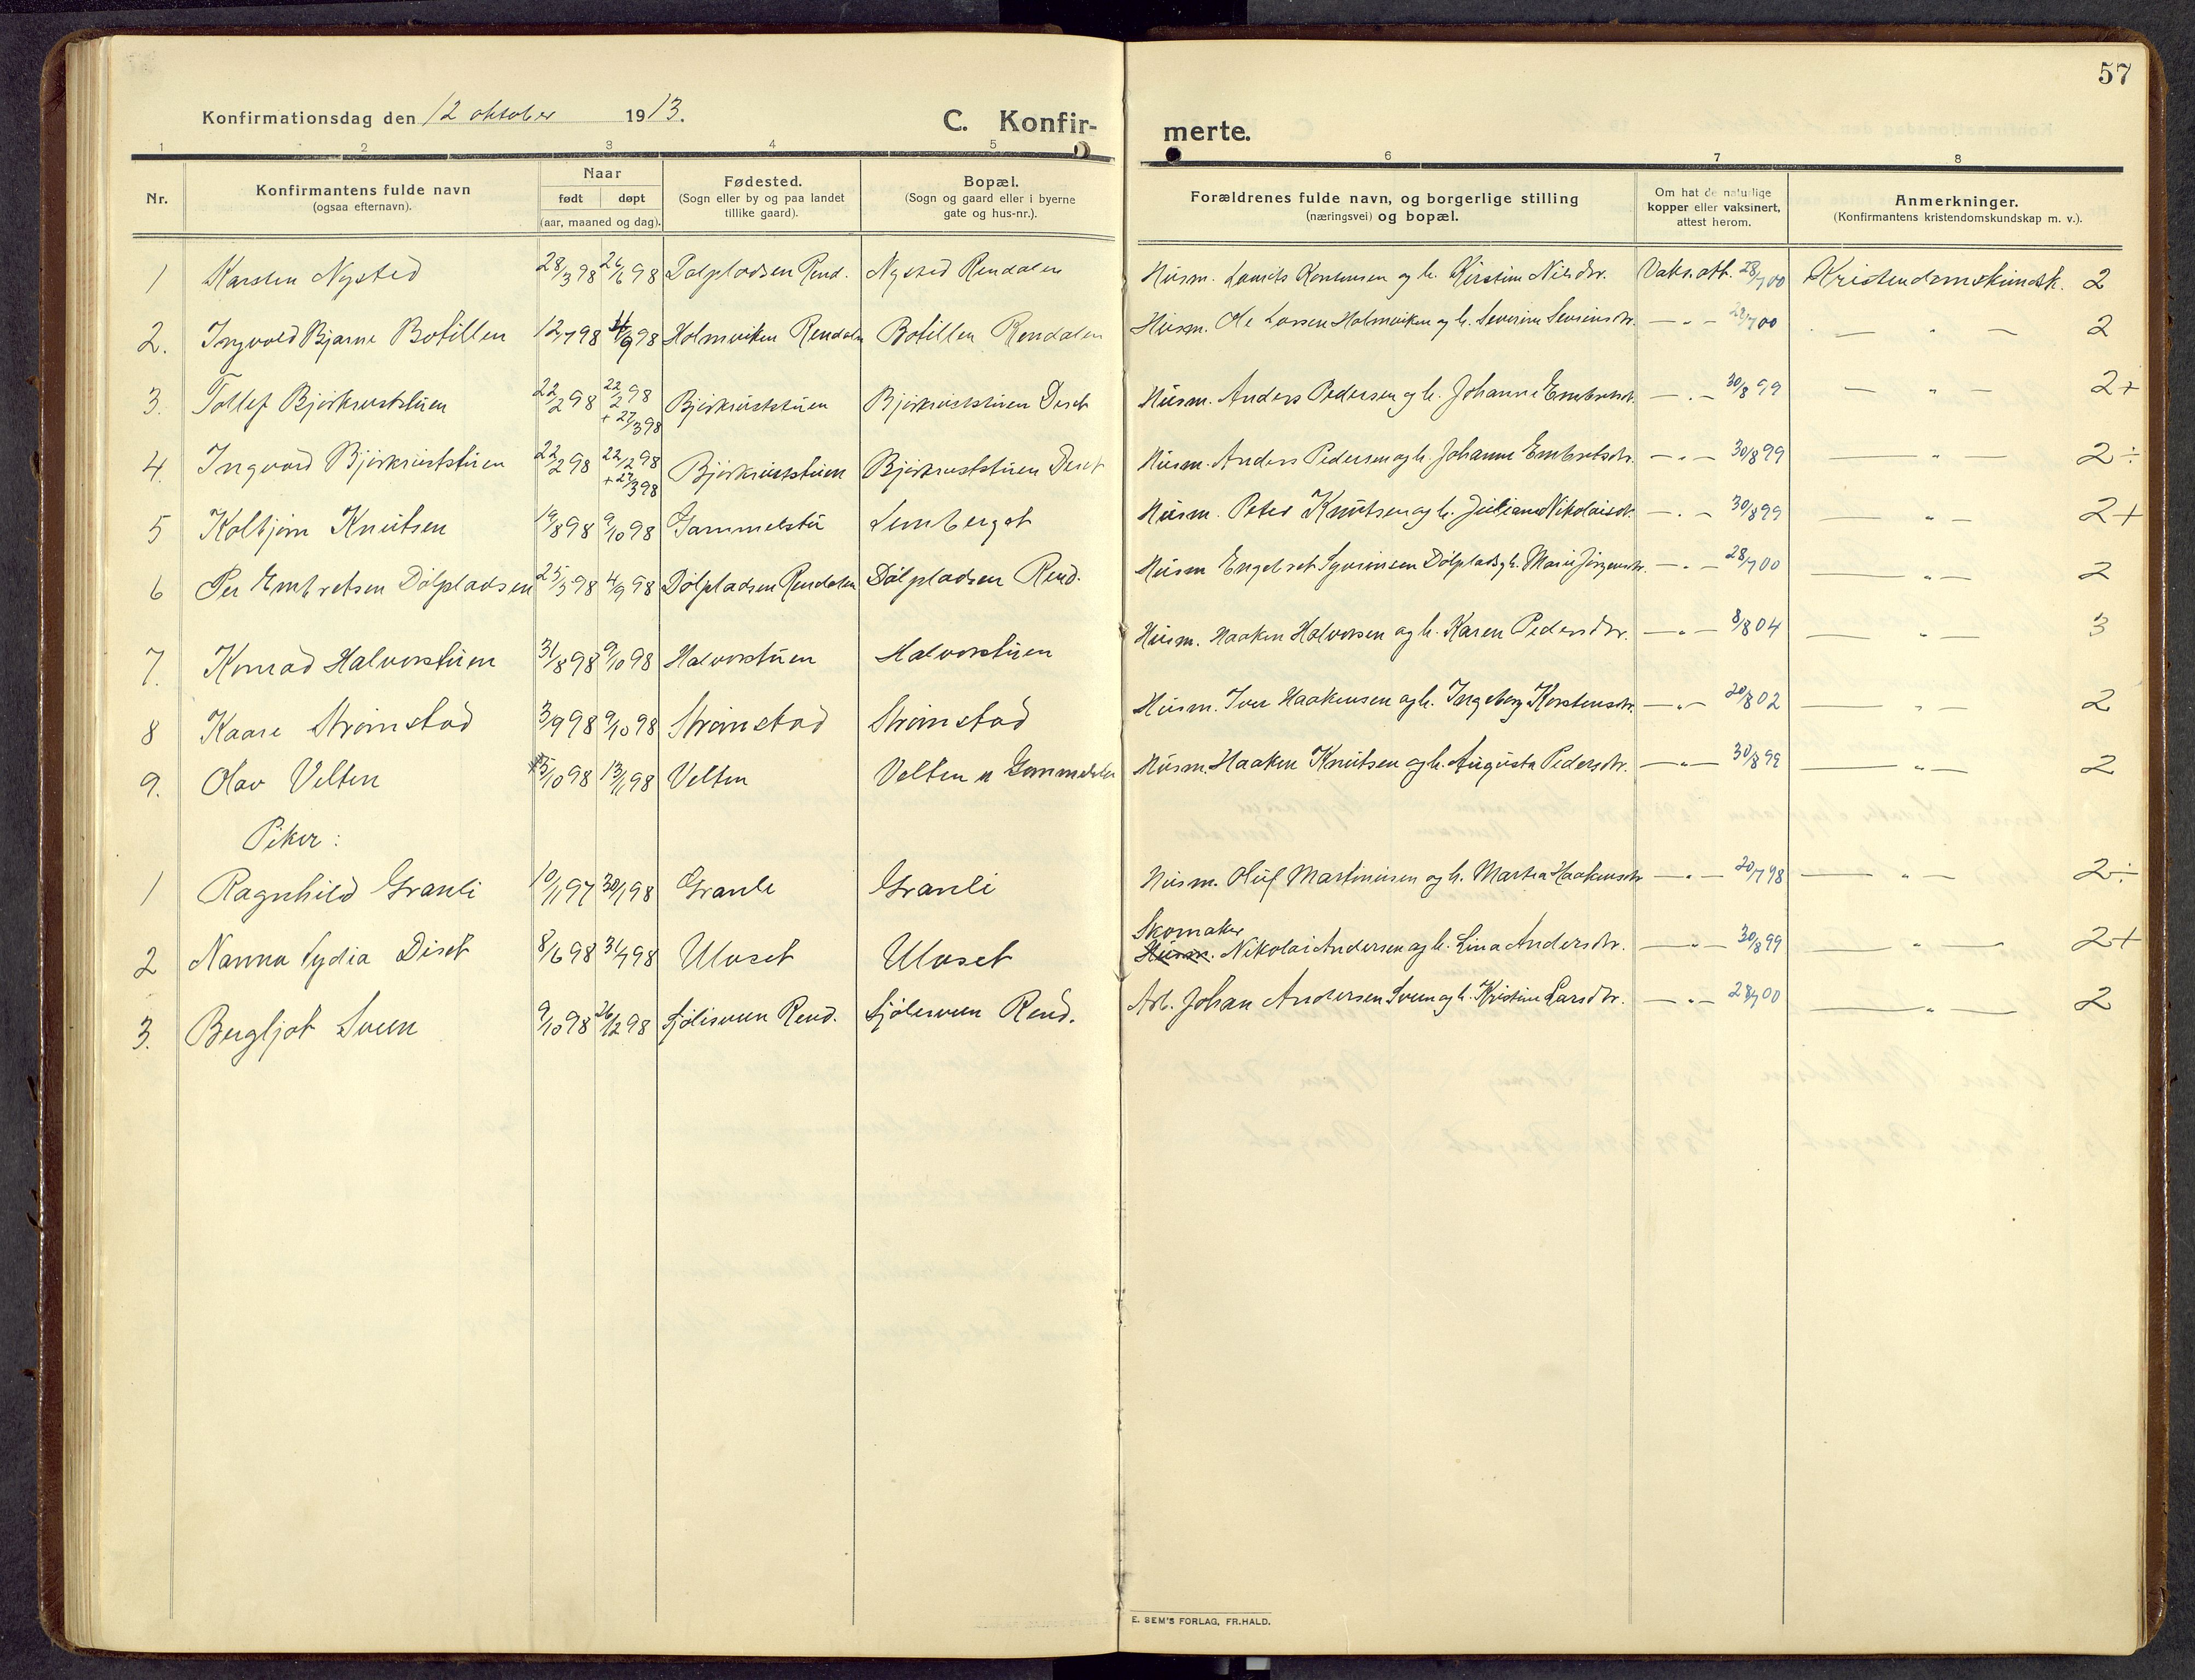 57
Konfirmationsdag den 12 oktober 1913.
C. Konfir-
merte.
1 2 3 4 5 6 7 8
Nr.
Konfirmantens fulde navn
(ogsaa efternavn).
Naar
født døpt
(aar, maaned og dag).
Fødested.
(Sogn eller by og paa landet
tillike gaard).
Bopæl.
(Sogn og gaard eller i byerne
gate og hus-nr.).
Forældrenes fulde navn, og borgerlige stilling
(næringsvei) og bopæl.
Om hat de naturlige
kopper eller vaksinert,
attest herom.
Anmerkninger.
(Konfirmantens kristendomskundskap m. v.).
1 Karsten Nysted 28/3 98 26/6 98 Dølpladsen Rend. Nysted Rendalen Husm. Karstensen og h. Kirstine Nilsdtr. Vaks.att. 28/7 00 Kristendomskundsk. 2
2. Ingvald Bjarne Botillen 12/7 98 4/9 98 Holmviken Rendalen Botillen Rendalen Husm. Ole Larsen Holmviken og h. Severine Sevrinsdtr. — „ — 28/7 00 — „ — 2
3. Tollef Bjørkruststuen 22/2 98 22/2 98 + 27/3 98 Bjørkruststuen Bjørkruststuen Deset Husm. Anders Pedersen og h. Johanne Embretsdtr. — „ — 30/8 99 — „ — 2+
4. Ingvard Bjørkruststuen 22/2 98 22/2 98 + 27/3 98 Bjørkruststuen Bjørkruststuen Deset Husm. Anders Pedersen og h. Johanne Embretsdtr. — „ — 30/8 99 — „ — 2÷
5 Kolbjørn Knutsen 19/8 98 9/10 98 Gammelstu Lemberget Husm. Peter Knutsen og h. Juliane Nikolaisdtr. — „ — 30/8 99 — „ — 2+
6 Per Embretsen Dølpladsen 25/5 98 4/9 98 Dølpladsen Rendalen Dølpladsen Rend. Husm Engebret Syvrinsen Dølplads og h. Marie Jørgensdtr. — „ — 28/7 00 — „ — 2
7. Konrad Halvorstuen 31/8 98 9/10 98 Halvorstuen Halvorstuen Husm. Haaken Halvorsen og h. Karen Pedersdtr. — „ — 8/8 04 — „ — 3
8 Kaare Strømstad 3/9 98 9/10 98 Strømstad Strømstad Husm. Iver Haakensen og h. Ingeborg Karstensdtr. — „ — 20/8 02 — „ — 2
9. Olav Velten 5/10 98 13/11 98 Velten Velten Husm. Haaken Knutsen og h. Augusta Pedersdtr. — „ — 30/8 99 — „ — 2
Piker:
1 Ragnhild Granli 10/11 97 30/1 98 Granli Granli Husm. Oluf Martinusen og h. Martea Haakensdtr — „ — 20/7 98 — „ — 2÷
Skomaker
2 Nanna Lydia Diset 8/6 98 31/7 98 Uloset Uloset Husm. Nikolai Andersen og h. Lina Andersdtr. — „ — 30/8 99 — „ — 2+
3. Bergljot Sveen 9/10 98 26/12 98 Sjølisveen Rend. Sjøliesveen Rend. Arb. Johan Andersen Sveen og h. Kristine Larsdtr. — „ — 28/7 00 — „ — 2
E. SEM'S FORLAG, FR.HALD.